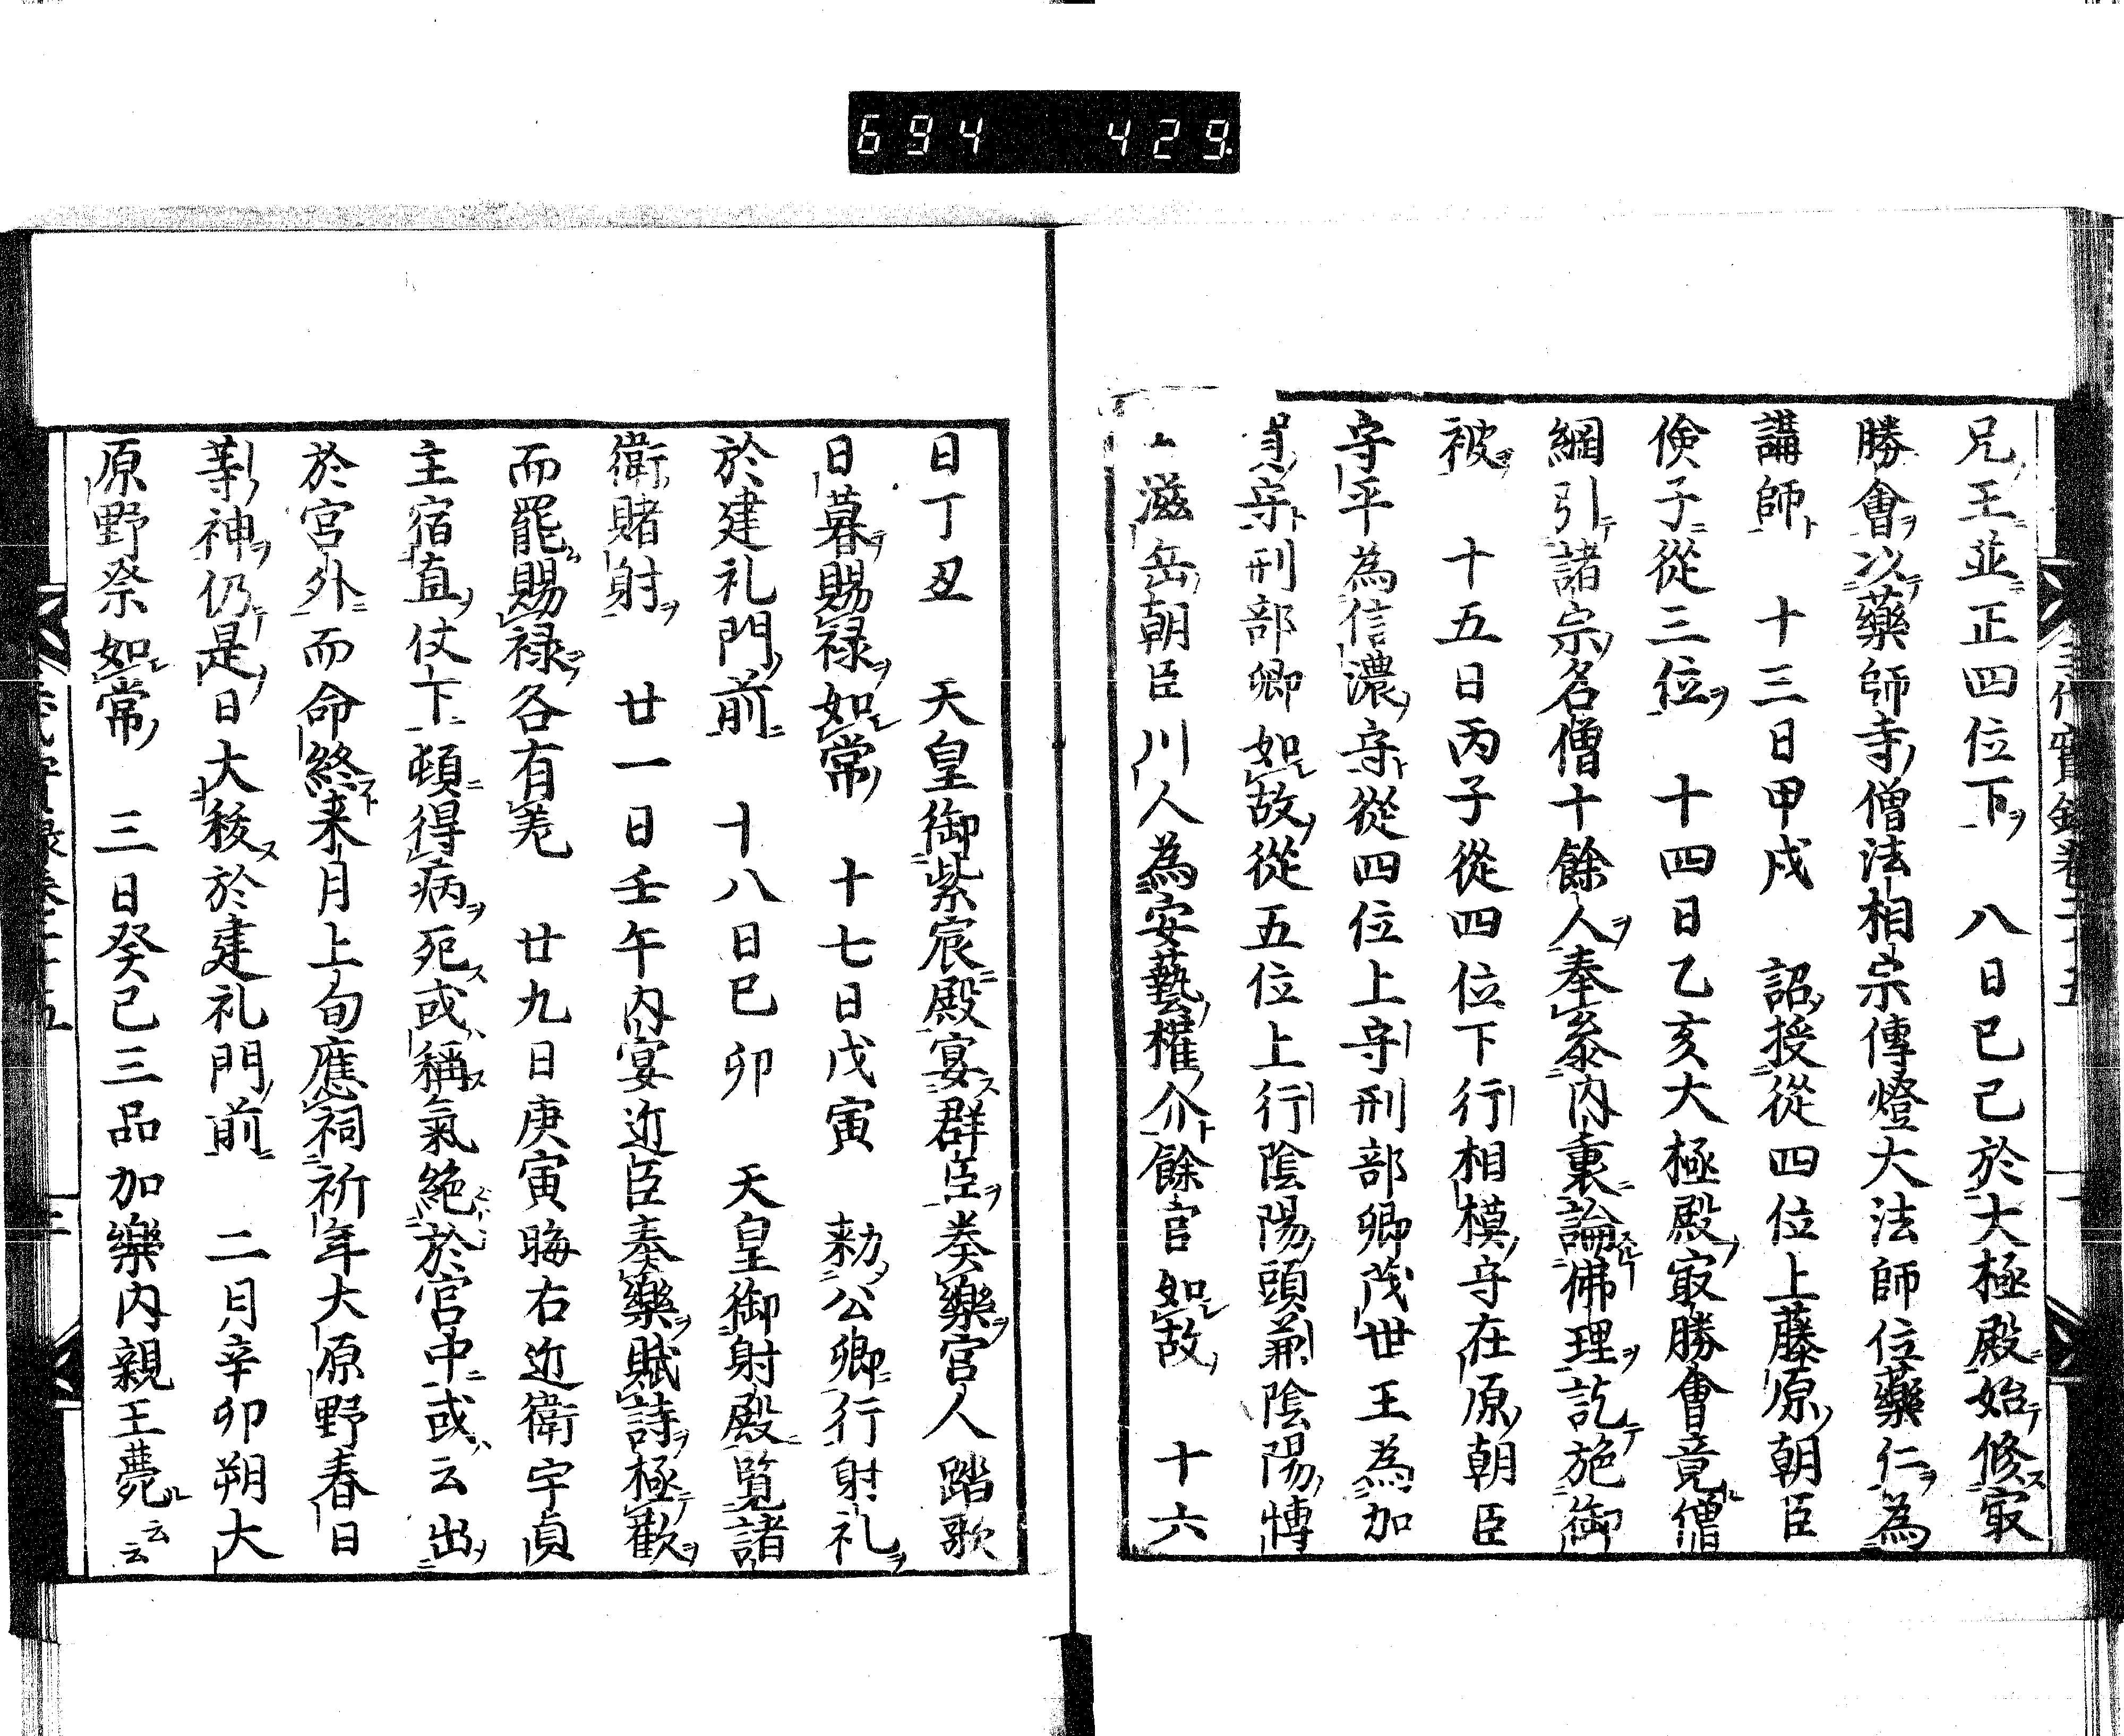 694 429
兄王並正四位下 八日己巳於大極殿始修㝡
勝會以藥師寺僧法相宗傳燈大法師位藥仁為
講師 十三日甲戌 詔授從四位上藤原朝臣
儉子從三位 十四日乙亥大極殿㝡勝會竟僧
綱引諸宗名僧十餘人奉參內裏論佛理訖施御
被 十五日丙子從四位下行相模守在原朝臣
守平為信濃守從四位上守刑部卿茂世王為加
賀守刑部卿如故從五位上行陰陽頭兼陰陽博
士滋岳朝臣川人為安藝權介餘官如故 十六
日丁丑 天皇御紫宸殿宴群臣奏樂宮人踏歌
日暮賜禄如常 十七日戊寅 勅公卿行射礼
於建礼門前 十八日己卯 天皇御射殿覧諸
衛賭射 廿一日壬午内宴近臣奏樂賦詩極歡
而罷賜禄各有差 廿九日庚寅晦右近衛宇貞
主宿直仗下頓得病死或稱氣絶於宮中或云出
於宮外而命終来月上旬應祠祈年大原野春日
等神仍是日大祓於建礼門前 二月辛卯朔大
原野祭如常 三日癸巳三品加樂内親王薨云云